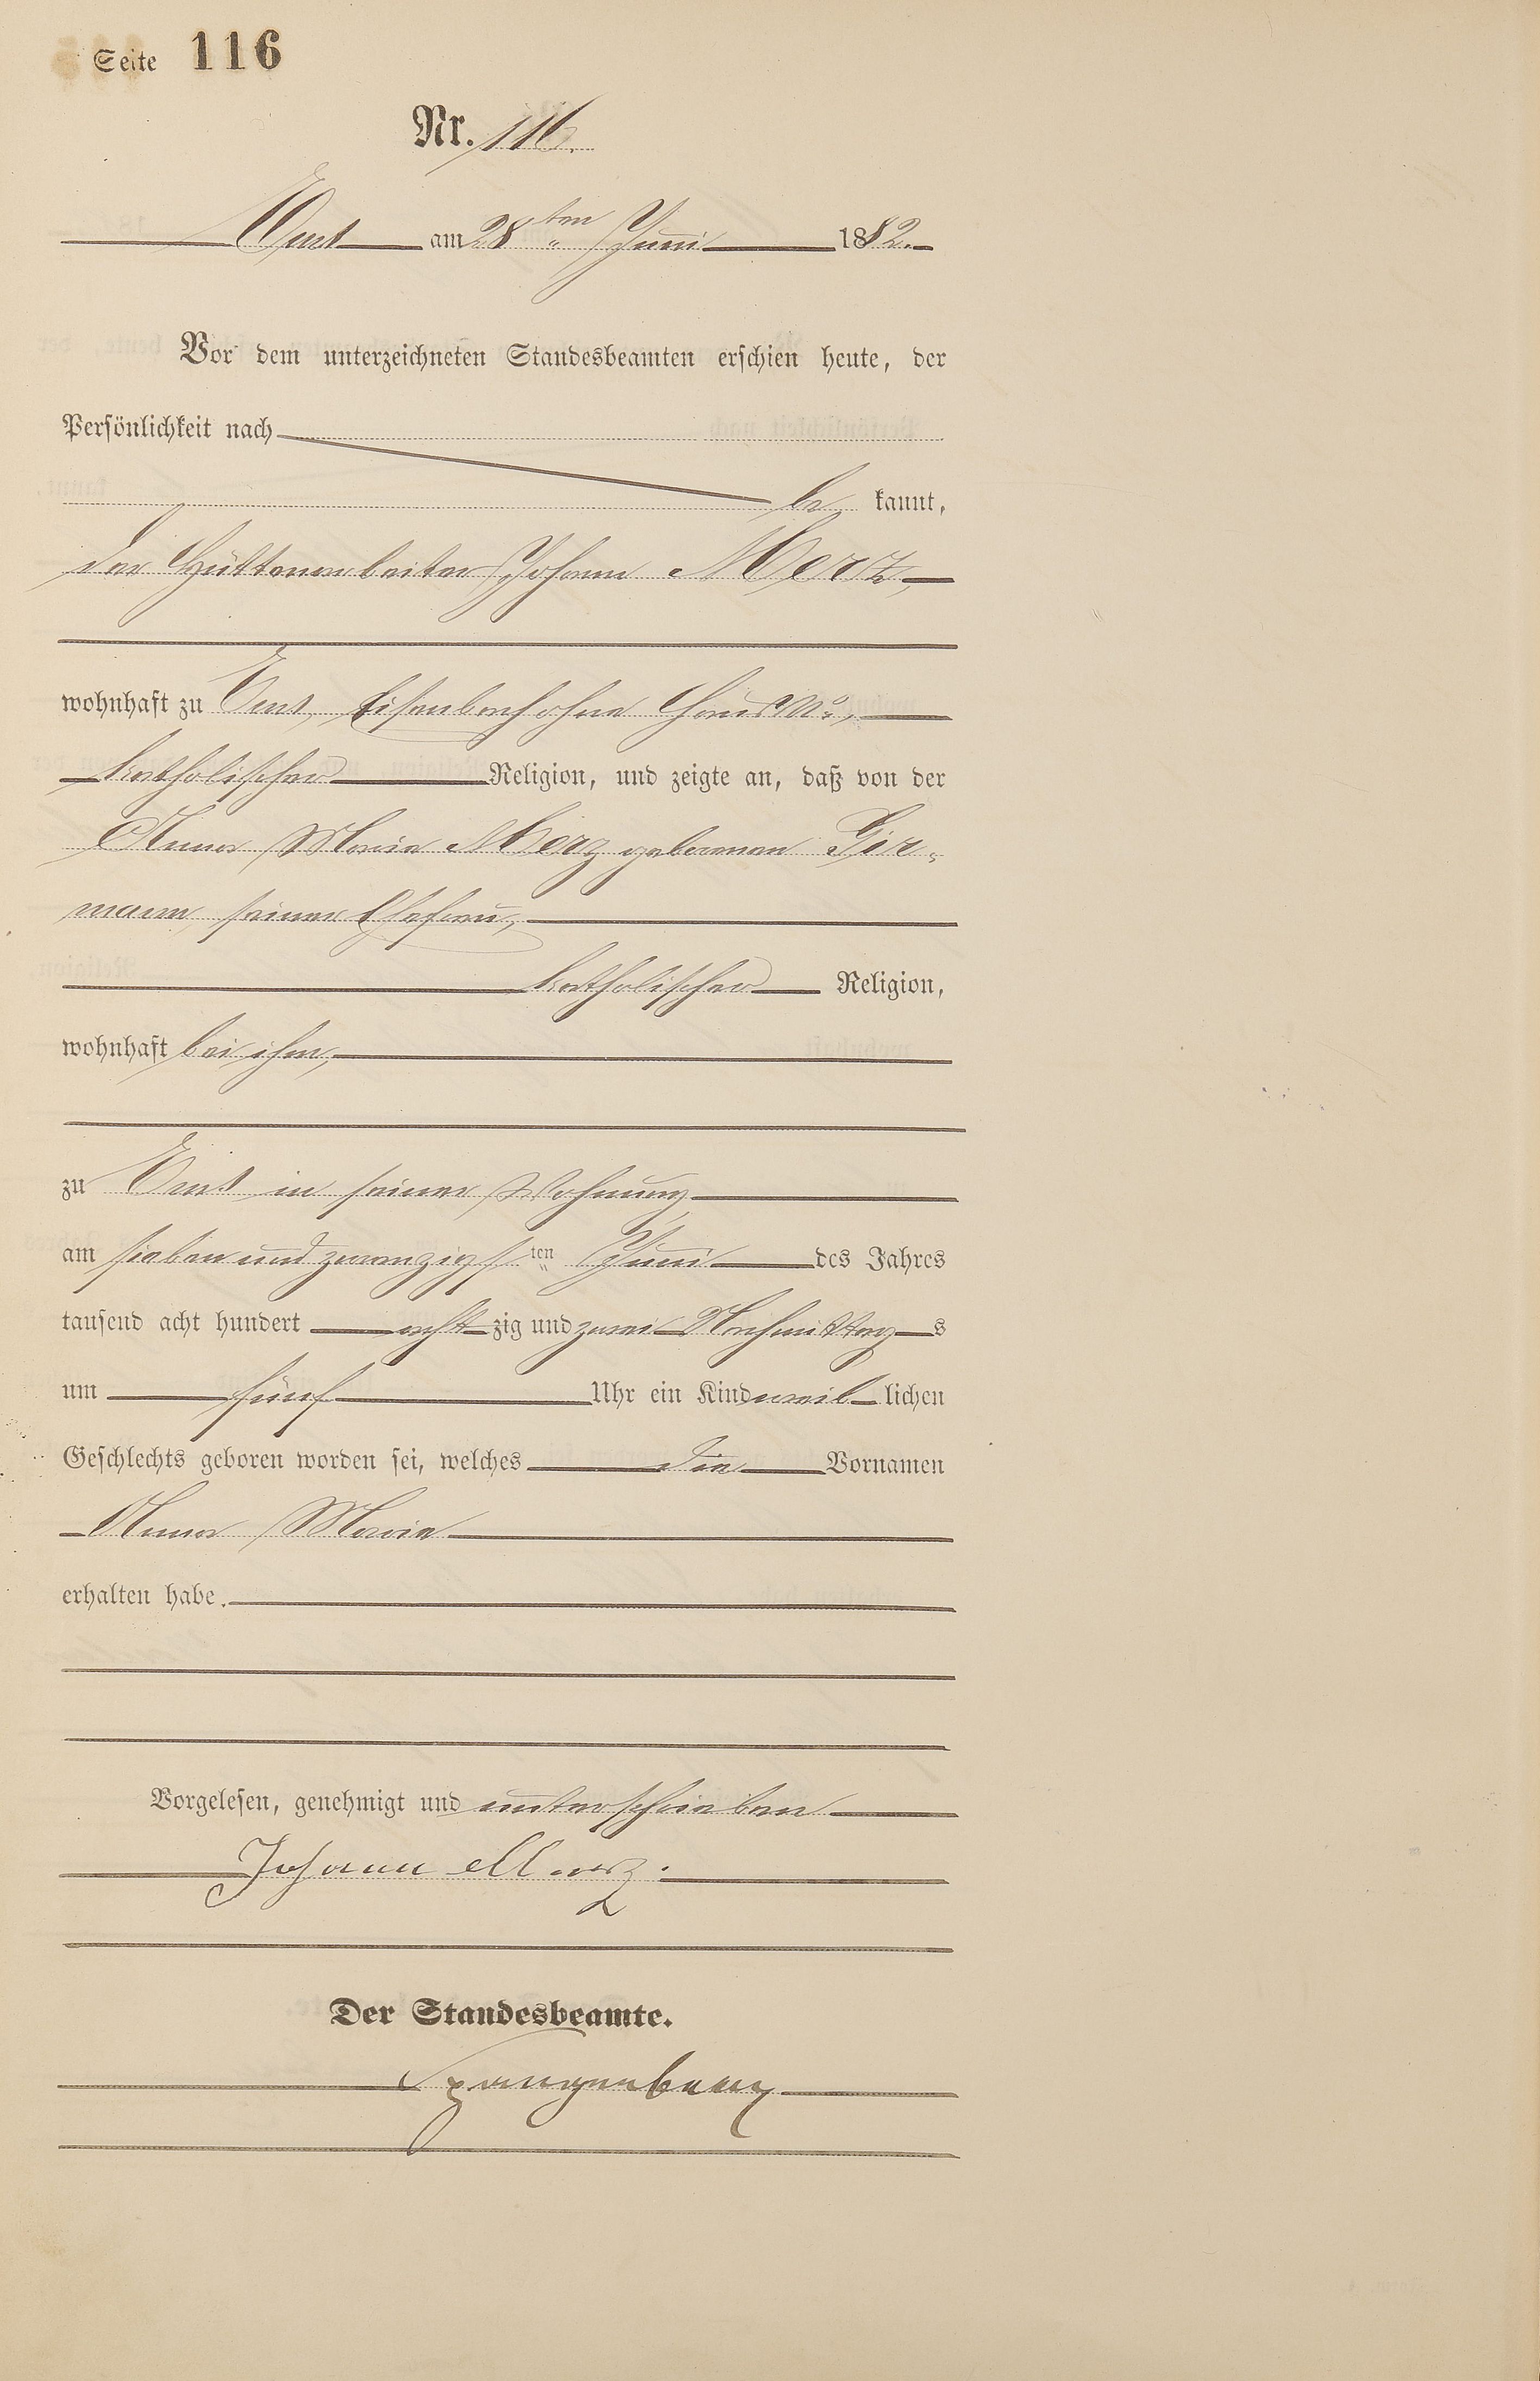 Seite 116
Nr. 116.
Ems am 28ten Juni 1882.
Vor dem unterzeichneten Standesbeamten erschien heute, der
Persönlichkeit nach
be kannt,
der Hüttenarbeiter Johann Merz,
wohnhaft zu Ems, Eisenbach ohne Haus No,
katholischer Religion, und zeigte an, daß von der
Anna Maria Merz geborenen Gir-
mann, seiner Ehefrau,
katholischer Religion,
wohnhaft bei ihm,
zu Ems in seiner Wohnung
am sieben und zwanzigsten Juni des Jahres
tausend acht hundert acht zig und zwei Nachmittag s
um fünf Uhr ein Kind weib lichen
Geschlechts geboren worden sei, welches die Vornamen
Anna Maria
erhalten habe.
Vorgelesen, genehmigt und unterschrieben
Johann Merz.
Der Standesbeamte.
Spangenberg